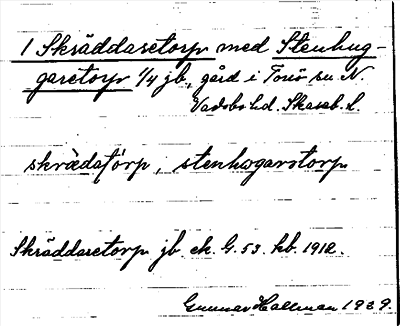 1 Skräddaretorp med Stenhug-
garetorp 1/4 jb., gård i Torsö sn. N.
Vadsbo hd. Skarab. l.
skrädatorp, stenhogarstorp
Skräddaretorp jb ek. G. 53. kb. 1912.
Gunnar Hallman 1939.